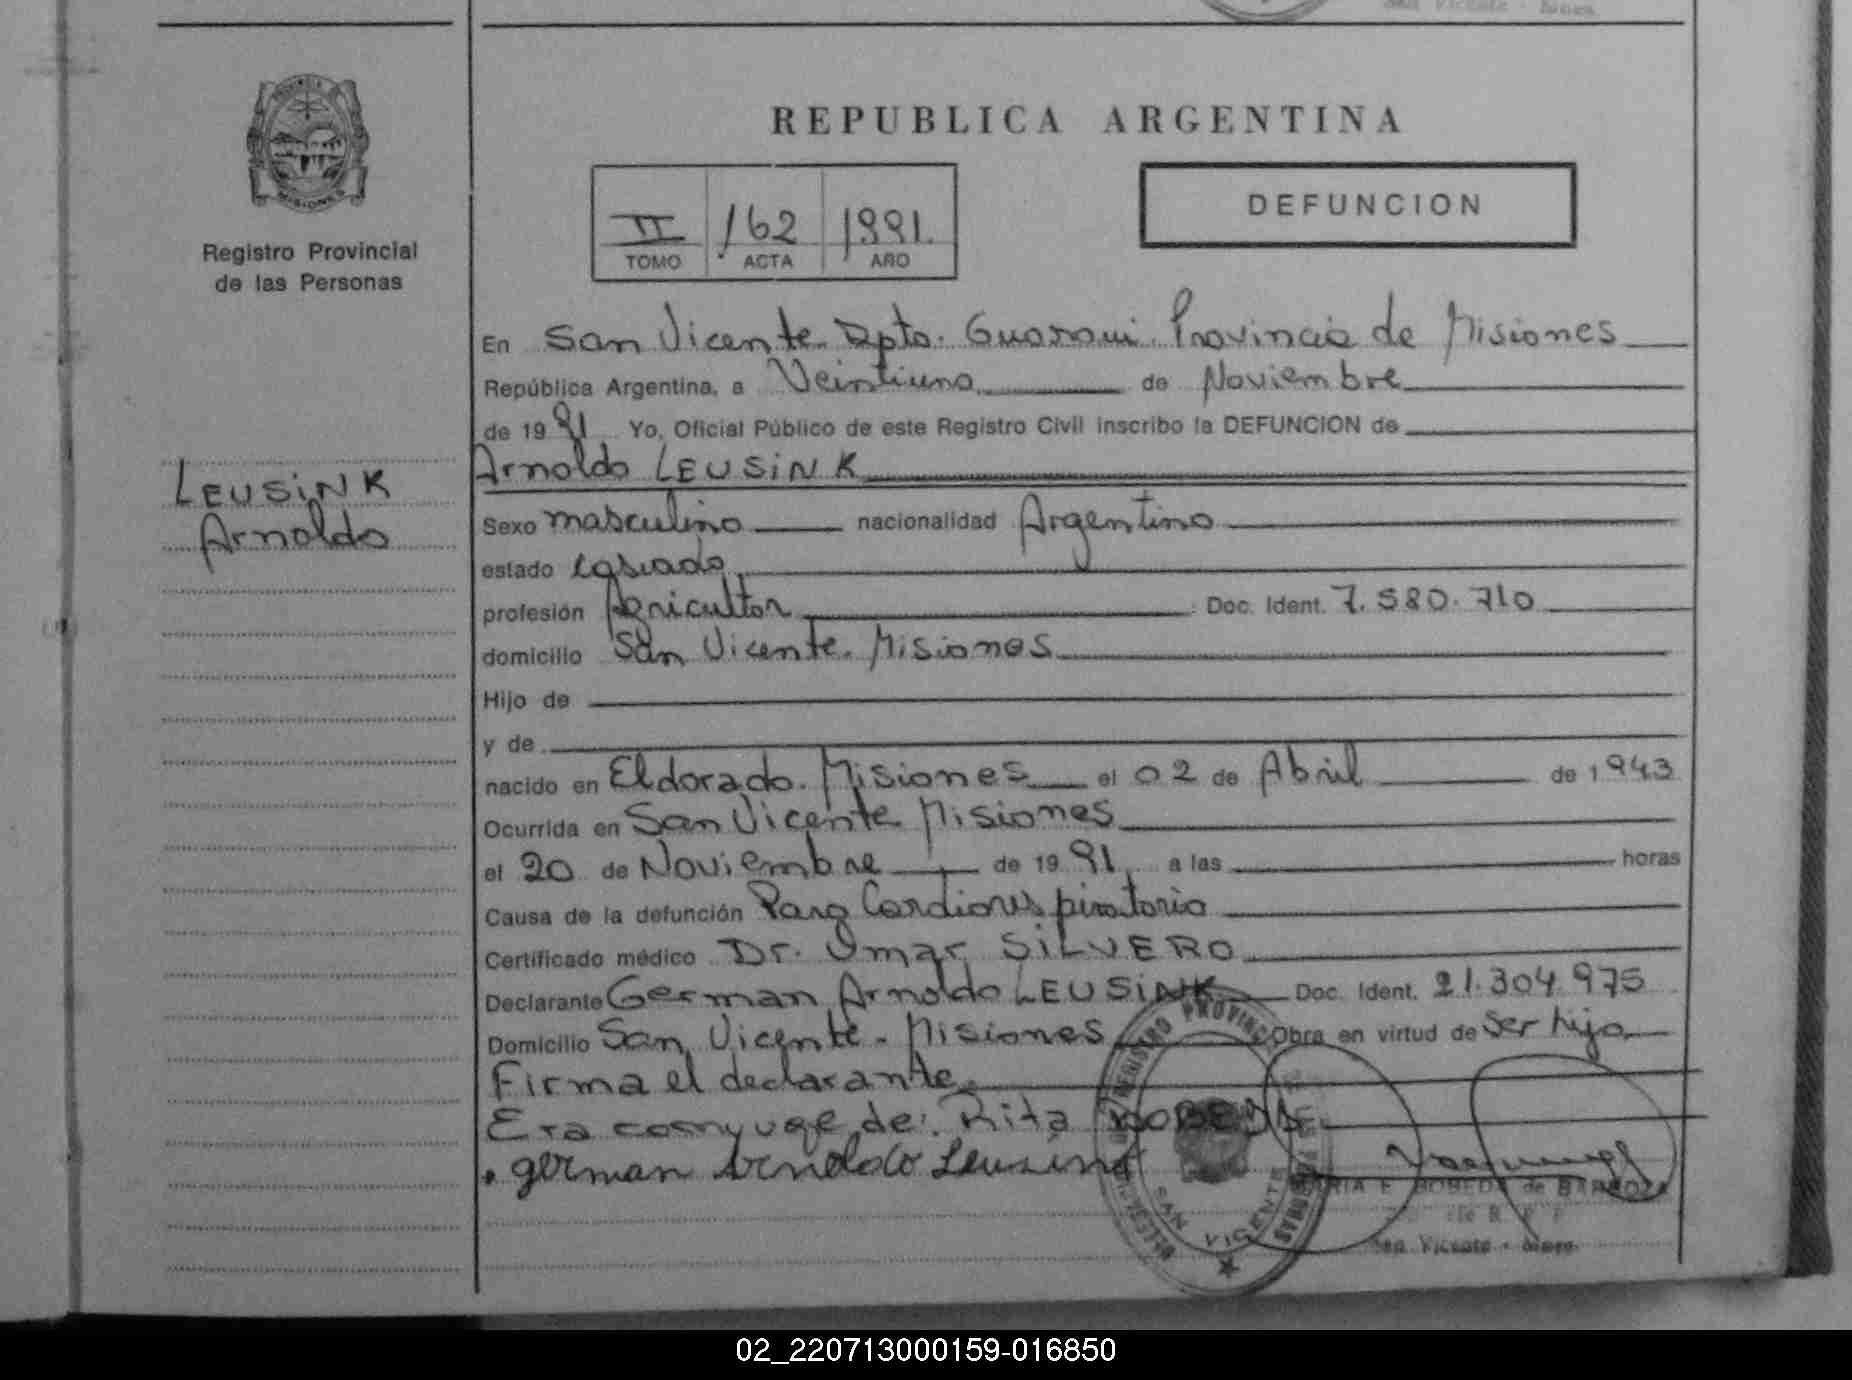 San Vicente - Mnes.
PROVINCIA
MISIONES
Registro Provincial
de las Personas
LEUSINK
Arnoldo
REPUBLICA ARGENTINA
DEFUNCION
II 162 1991.
TOMO ACTA AÑO
En San Vicente. Dpto. Guarani. Provincia de Misiones
República Argentina, a Veintiuno de Noviembre
de 1991 Yo, Oficial Público de este Registro Civil inscribo la DEFUNCION de
Arnoldo LEUSINK
Sexo masculino nacionalidad Argentino
estado casado
profesión Agricultor Doc. Ident. 7.580.710
domicilio San Vicente. Misiones
Hijo de
y de
nacido en Eldorado. Misiones el 02 de Abril de 1943
Ocurrida en San Vicente Misiones
el 20 de Noviembre de 1991 a las horas
Causa de la defunción Paro Cardiorespiratorio
Certificado médico Dr. Omar SILVERO
Declarante German Arnoldo LEUSINK Doc. Ident. 21.304.975
Domicilio San Vicente - Misiones Obra en virtud de ser hijo
Firma el declarante
Era conyuge de: Rita
german Arnoldo Leusink
REGISTRO PROVINCIAL DE LAS PERSONAS
SAN VICENTE
MARIA E. BOBEDA de BARBOZA
R. P. P.
San Vicente - Mnes.
02_220713000159-016850